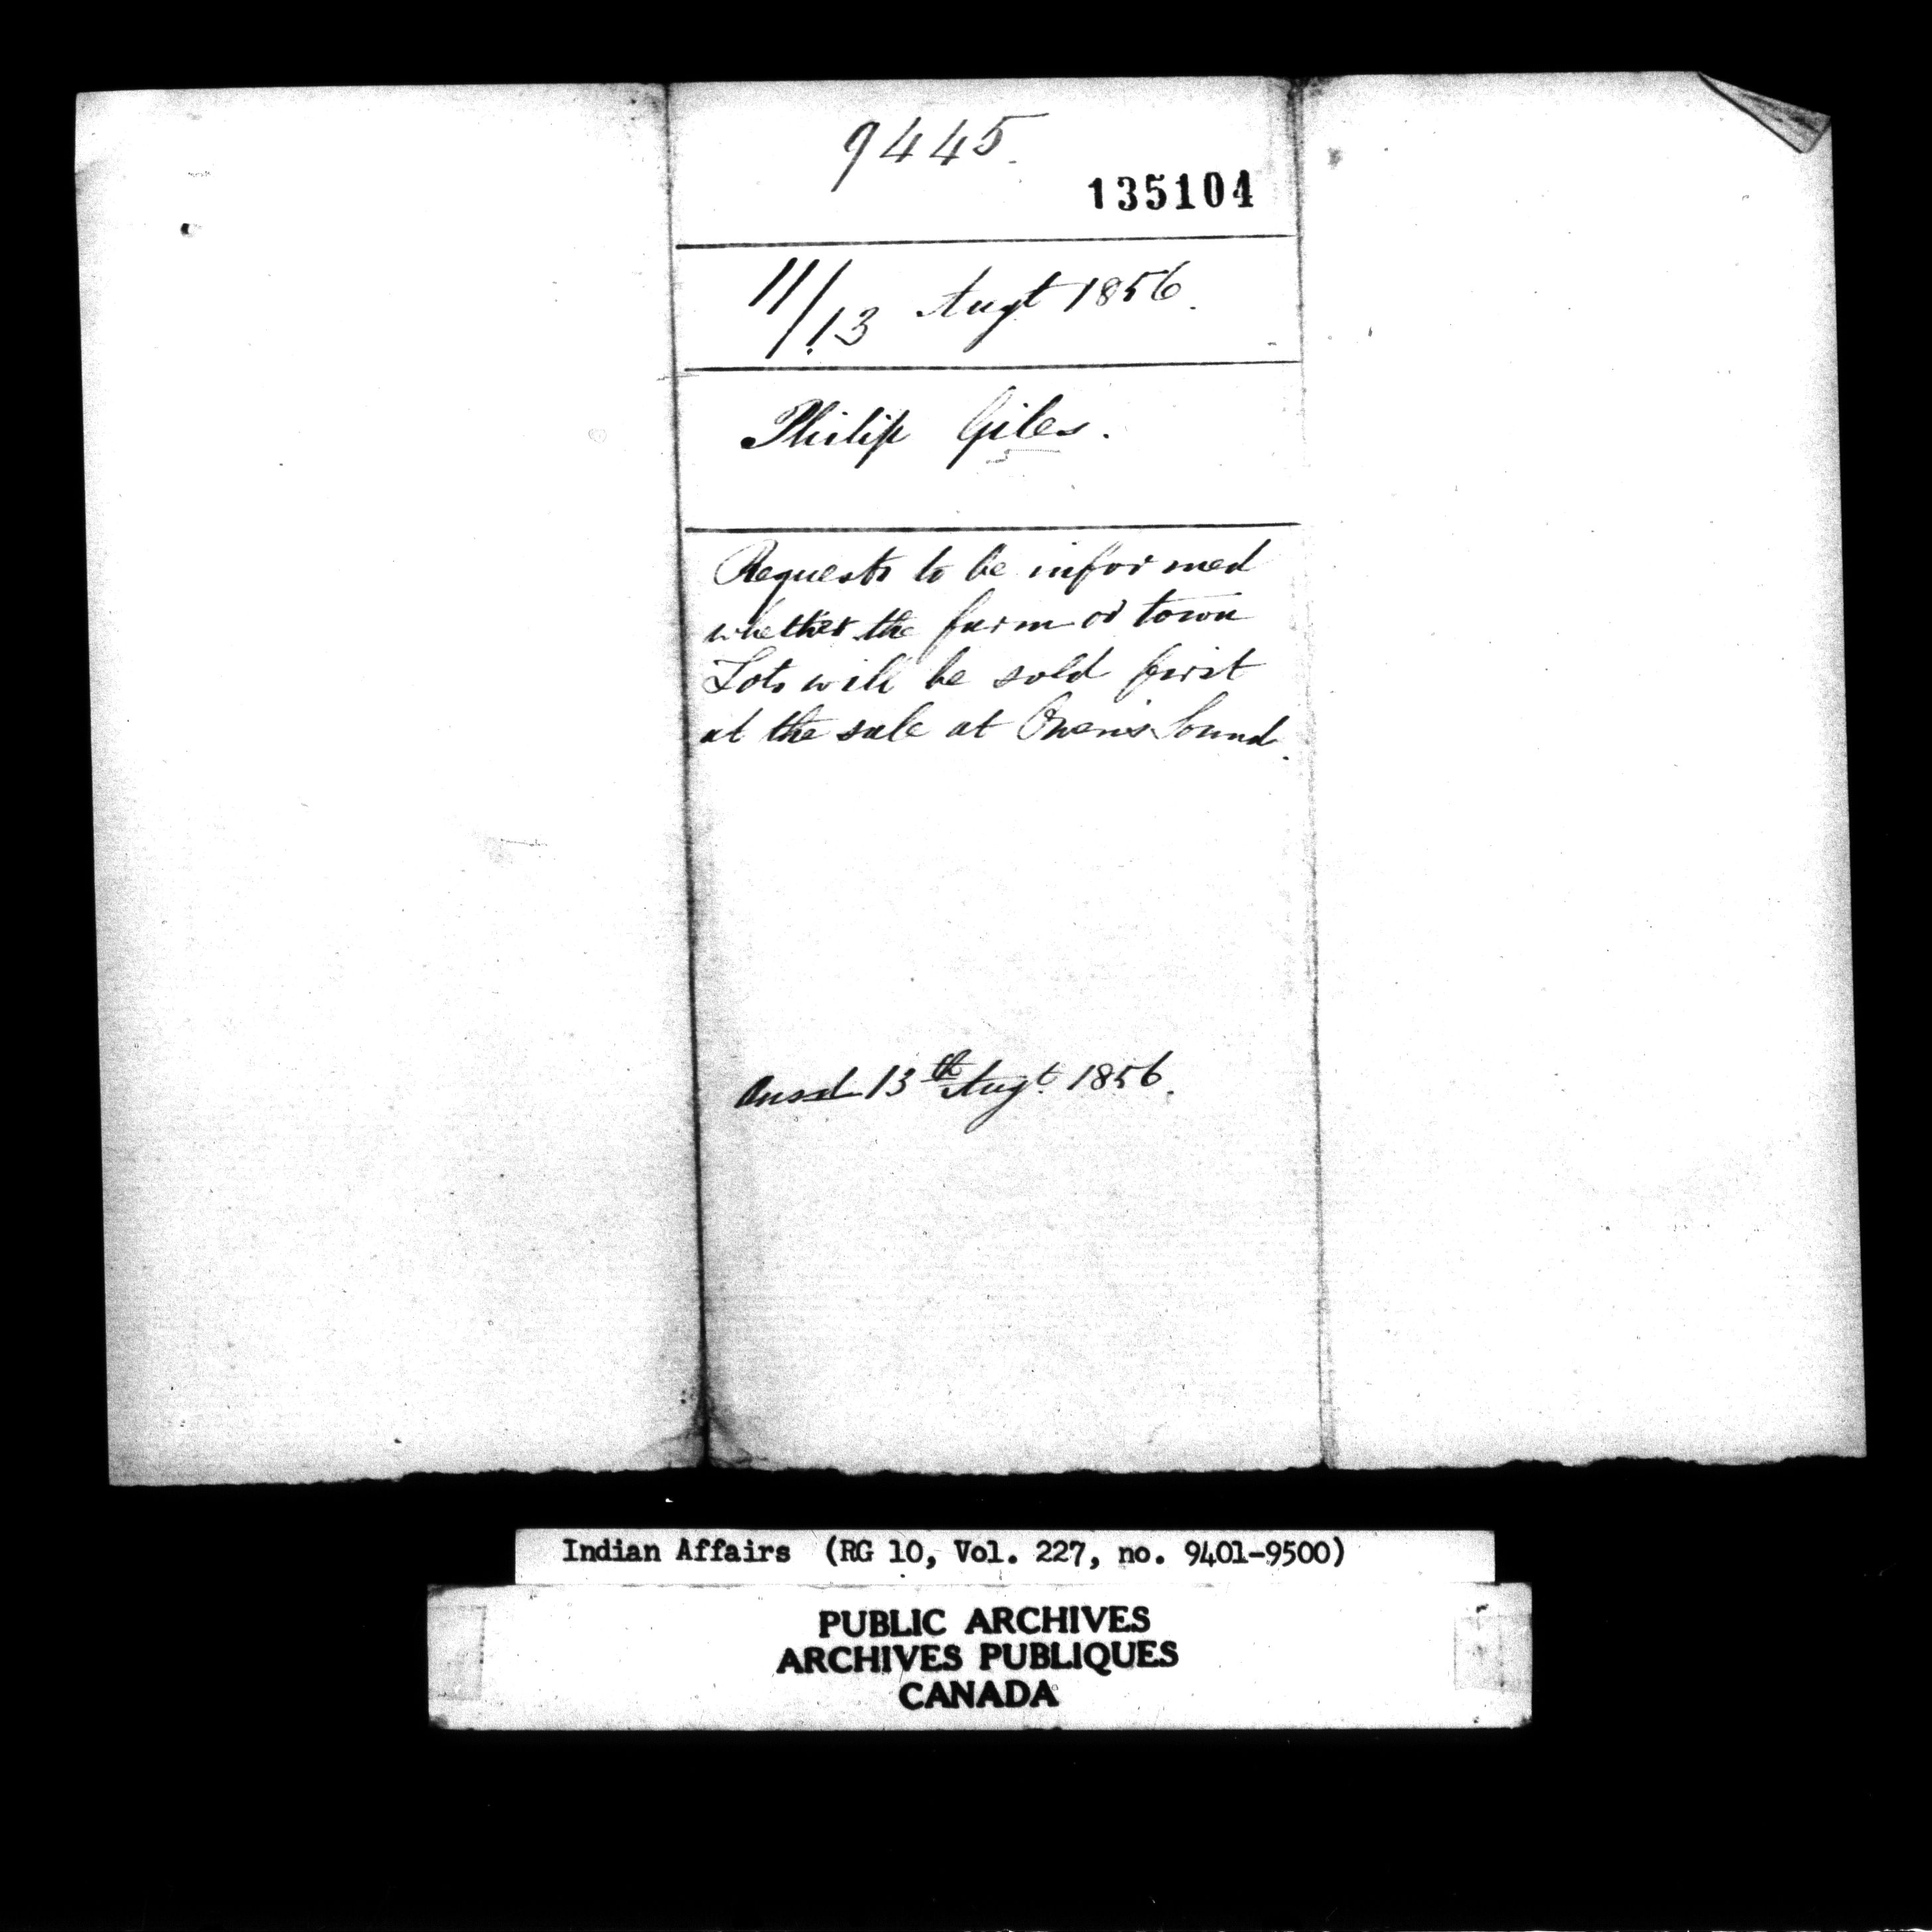 9445.
135104
11/13 Augt 1856.
Philip Giles.
Requests to be informed
whether the farm or town
Lots will be sold first
at the sale at Owen's Sound.
Ansd 13th Augt 1856.
Indian Affairs (RG 10, Vol. 227, no. 9401-9500)
PUBLIC ARCHIVES
ARCHIVES PUBLIQUES
CANADA